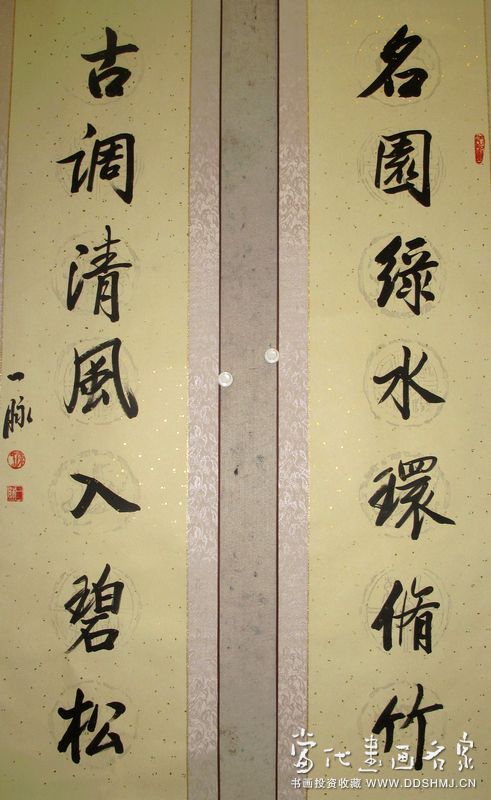 名園綠水環脩竹
古调清風入碧松
一脉
当代書画名家
书画投资收藏 WWW.DDSHMJ.CN